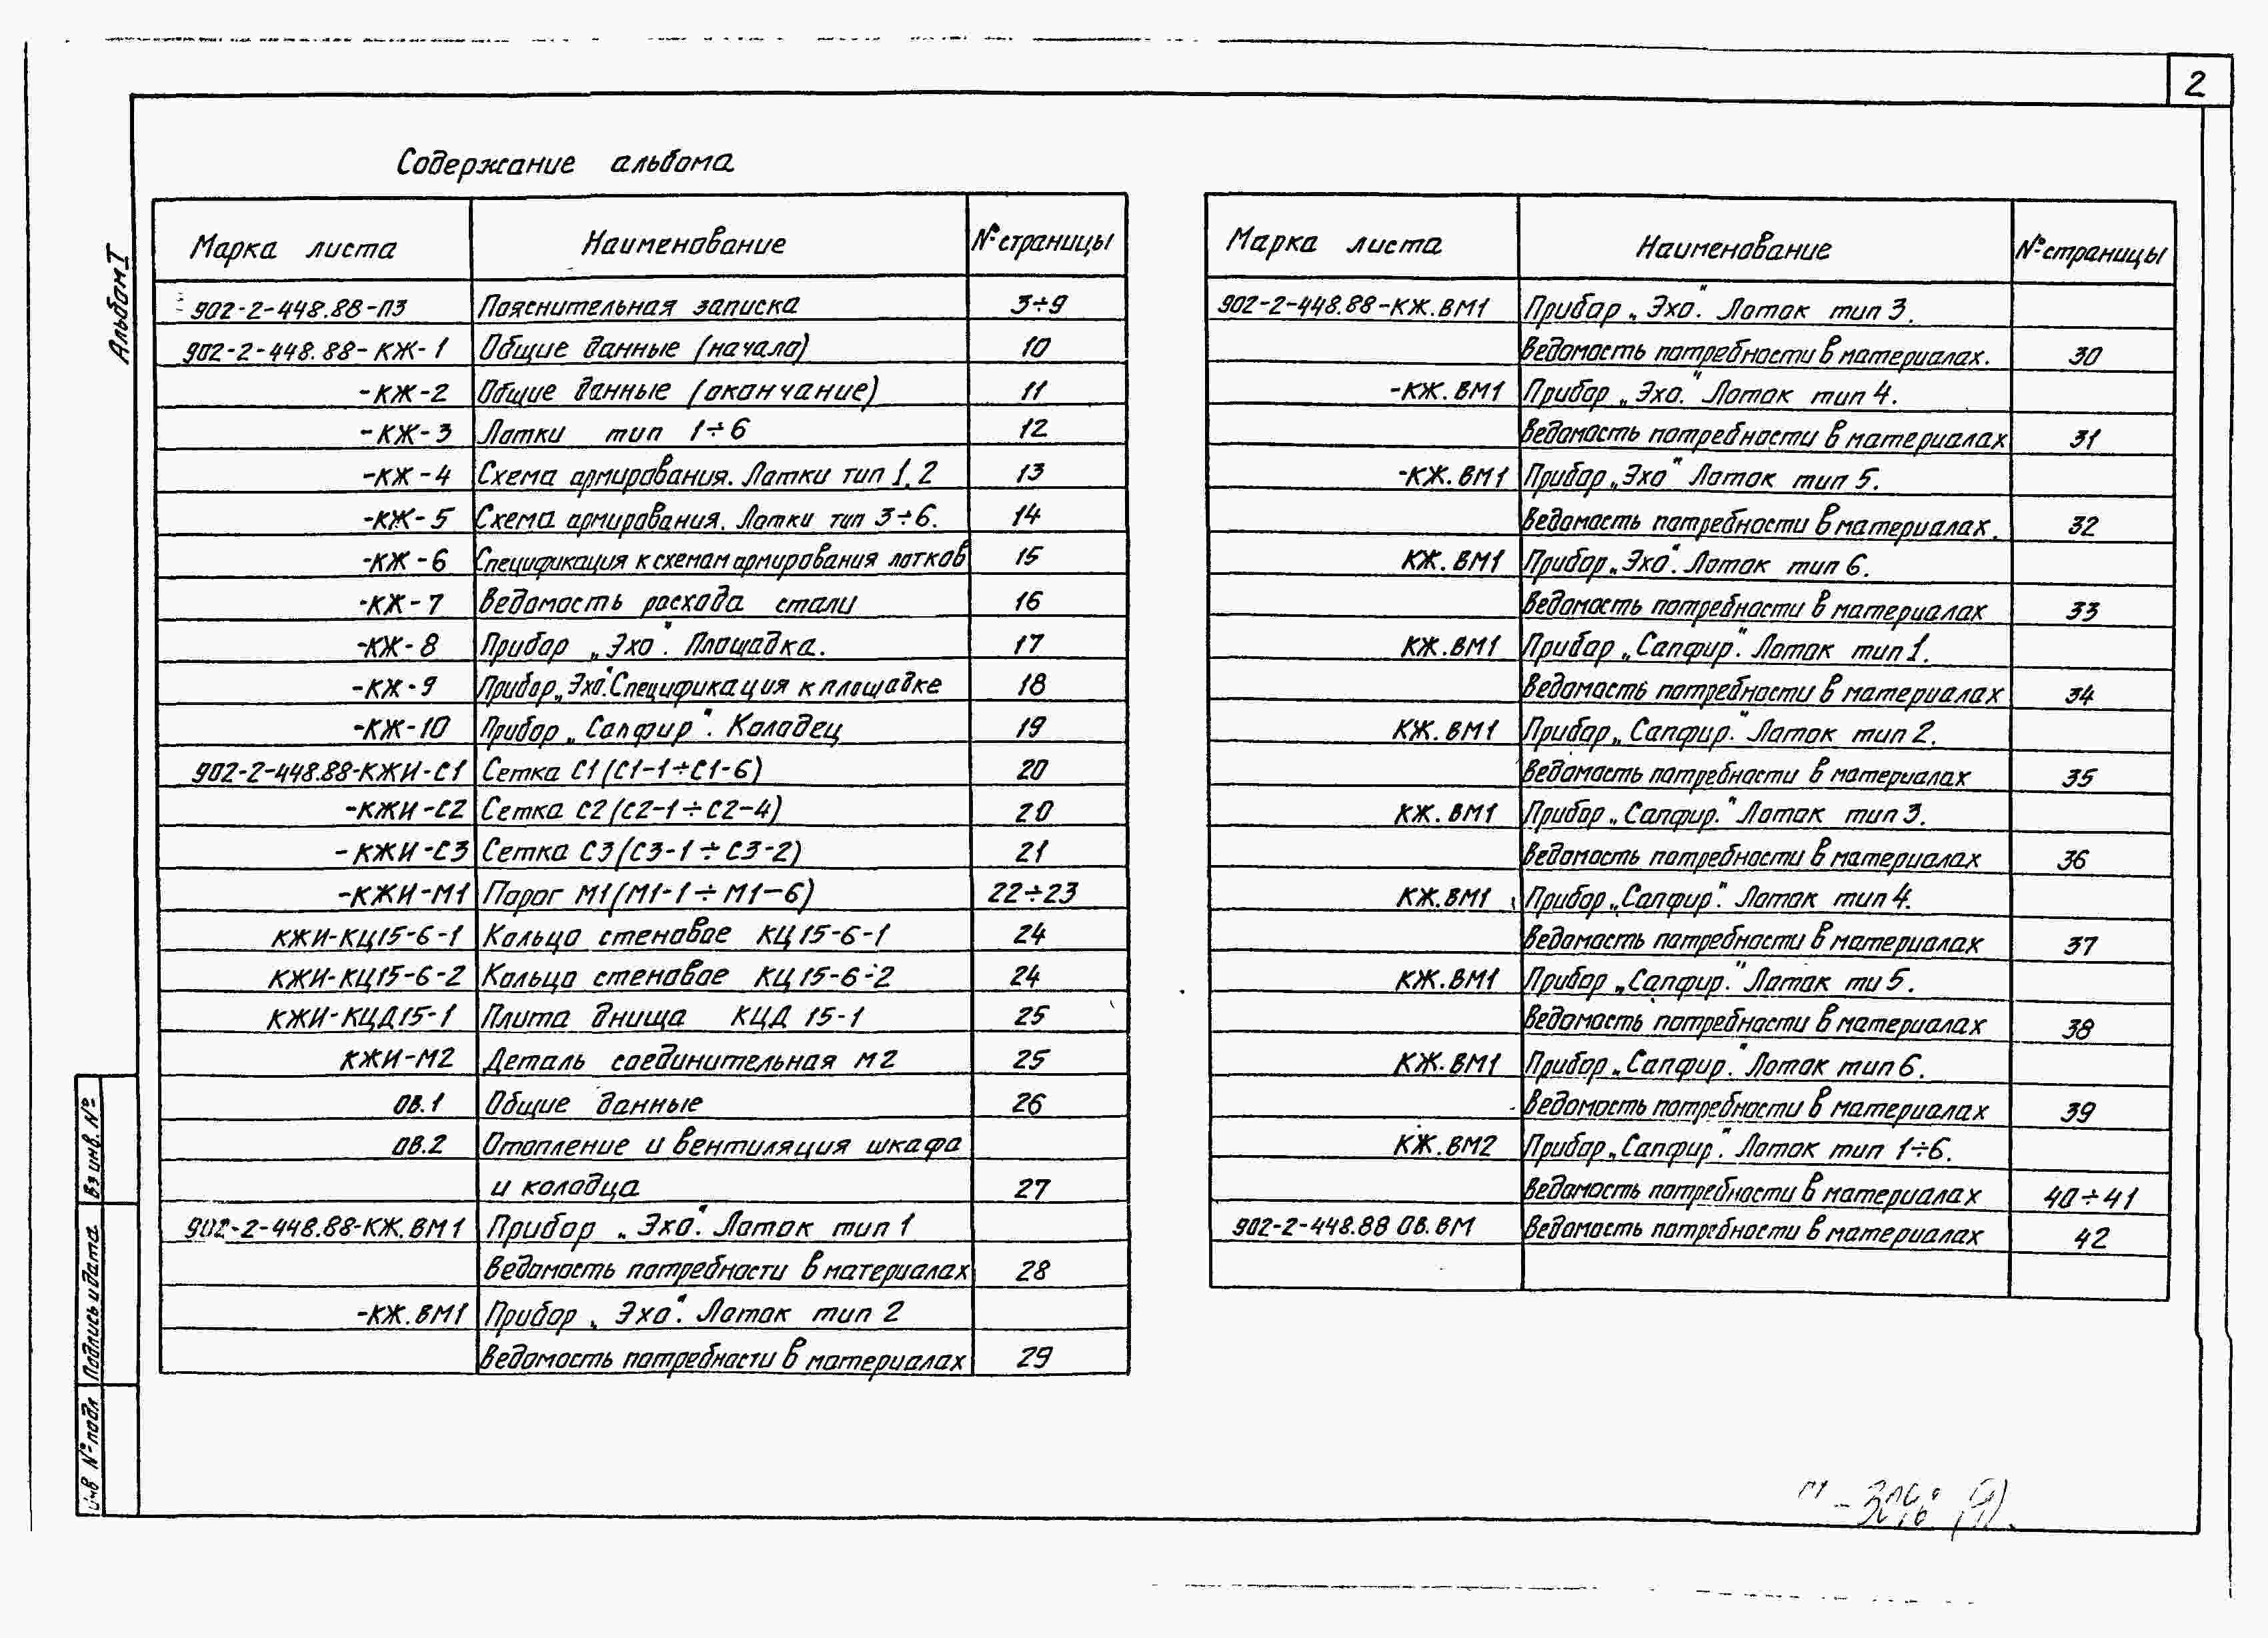 2
Содержание альбома
Альбом I
Марка листа Наименование № страницы
902-2-448.88-ПЗ Пояснительная записка 3÷9
902-2-448.88-КЖ-1 Общие данные (начало) 10
-КЖ-2 Общие данные (окончание) 11
-КЖ-3 Лотки тип 1÷6 12
-КЖ-4 Схема армирования. Лотки тип 1, 2 13
-КЖ-5 Схема армирования. Лотки тип 3÷6. 14
-КЖ-6 Спецификация к схемам армирования лотков 15
-КЖ-7 Ведомость расхода стали 16
-КЖ-8 Прибор „Эхо". Площадка. 17
-КЖ-9 Прибор „Эхо". Спецификация к площадке 18
-КЖ-10 Прибор „Сапфир". Колодец 19
902-2-448.88-КЖИ-С1 Сетка С1 (С1-1÷С1-6) 20
-КЖИ-С2 Сетка С2 (С2-1÷С2-4) 20
-КЖИ-С3 Сетка С3 (С3-1÷С3-2) 21
-КЖИ-М1 Порог М1 (М1-1÷М1-6) 22÷23
КЖИ-КЦ15-6-1 Кольцо стеновое КЦ15-6-1 24
КЖИ-КЦ15-6-2 Кольцо стеновое КЦ15-6-2 24
КЖИ-КЦД15-1 Плита днища КЦД 15-1 25
КЖИ-М2 Деталь соединительная М2 25
ОВ.1 Общие данные 26
ОВ.2 Отопление и вентиляция шкафа
и колодца 27
902-2-448.88-КЖ.ВМ1 Прибор „Эхо". Лоток тип 1
Ведомость потребности в материалах 28
-КЖ.ВМ1 Прибор „Эхо". Лоток тип 2
Ведомость потребности в материалах 29
Марка листа Наименование № страницы
902-2-448.88-КЖ.ВМ1 Прибор „Эхо". Лоток тип 3.
Ведомость потребности в материалах. 30
-КЖ.ВМ1 Прибор „Эхо." Лоток тип 4.
Ведомость потребности в материалах 31
-КЖ.ВМ1 Прибор „Эхо" Лоток тип 5.
Ведомость потребности в материалах. 32
КЖ.ВМ1 Прибор „Эхо". Лоток тип 6.
Ведомость потребности в материалах 33
КЖ.ВМ1 Прибор „Сапфир". Лоток тип 1.
Ведомость потребности в материалах 34
КЖ.ВМ1 Прибор „Сапфир." Лоток тип 2.
Ведомость потребности в материалах 35
КЖ.ВМ1 Прибор „Сапфир." Лоток тип 3.
Ведомость потребности в материалах 36
КЖ.ВМ1 Прибор „Сапфир". Лоток тип 4.
Ведомость потребности в материалах 37
КЖ.ВМ1 Прибор „Сапфир." Лоток ти 5.
Ведомость потребности в материалах 38
КЖ.ВМ1 Прибор „Сапфир." Лоток тип 6.
Ведомость потребности в материалах 39
КЖ.ВМ2 Прибор „Сапфир". Лоток тип 1÷6.
Ведомость потребности в материалах 40÷41
902-2-448.88 ОВ.ВМ Ведомость потребности в материалах 42
Вз инв. №
Подпись и дата
Инв № подл